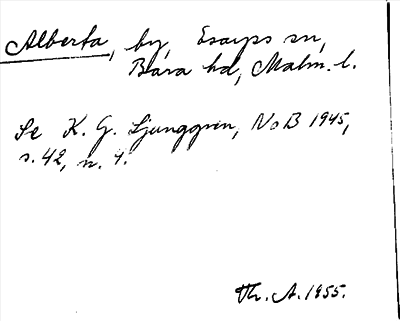 Alberta, by, Esarps sn,
Bara hd, Malm. l.
Se K. G. Ljunggren, NoB 1945,
s. 42, n. 4.
Th. A. 1955.